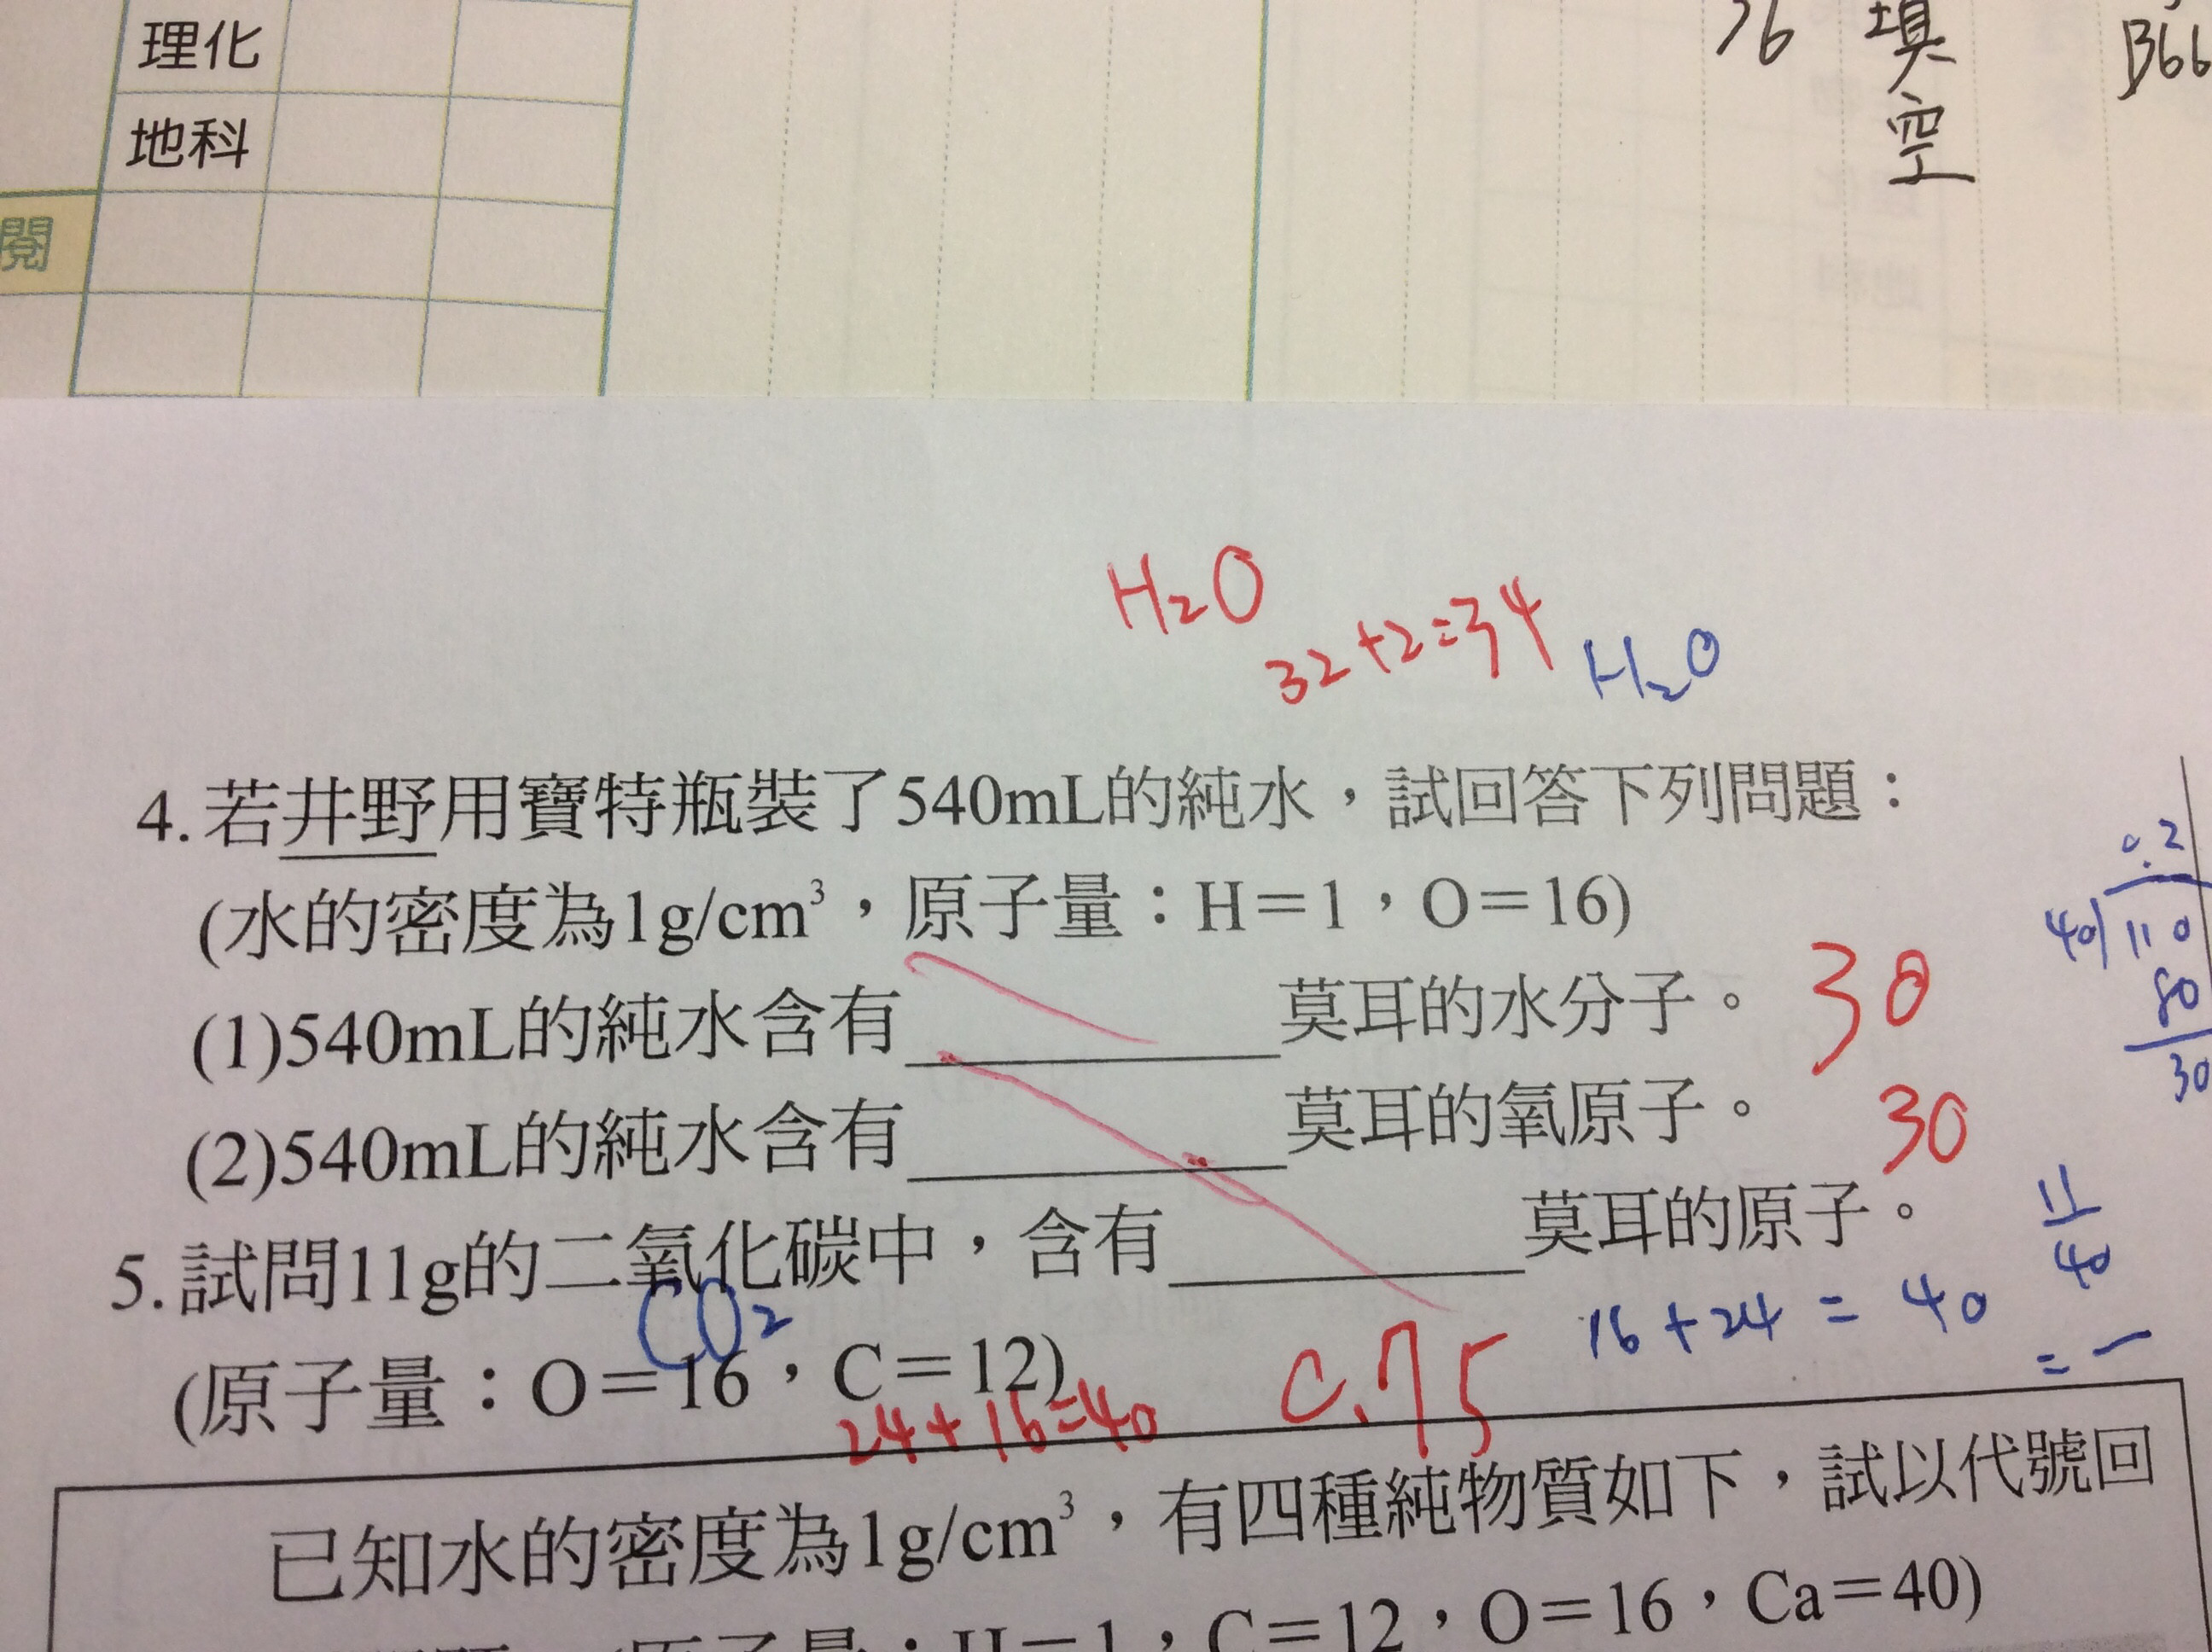 理化
地科
閱
填空
B66
H₂O
32+2=34
H₂O
4.若井野用寶特瓶裝了540mL的純水，試回答下列問題：
(水的密度為1g/cm³，原子量：H=1，O=16)
(1)540mL的純水含有__________莫耳的水分子。 30
(2)540mL的純水含有__________莫耳的氧原子。 30
5.試問11g的二氧化碳中，含有__________莫耳的原子。
CO₂
(原子量：O=16，C=12)
24+16=40
0.75
16+24=40
0.2
40 110
80
30
11
40
=
已知水的密度為1g/cm³，有四種純物質如下，試以代號回
(原子量：H=1，C=12，O=16，Ca=40)